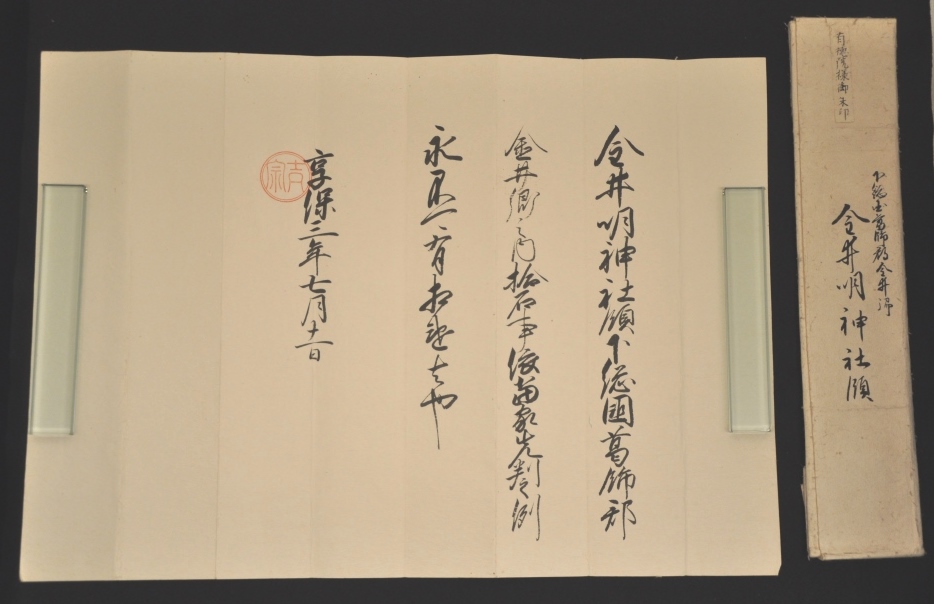 金井明神社領下総國葛飾郡
金井郷之内拾石事依當家先判之例
永不可有相違者也
享保三年七月十一日
吉宗
有徳院様御朱印
下総国葛飾郡金井郷
金井明神社領